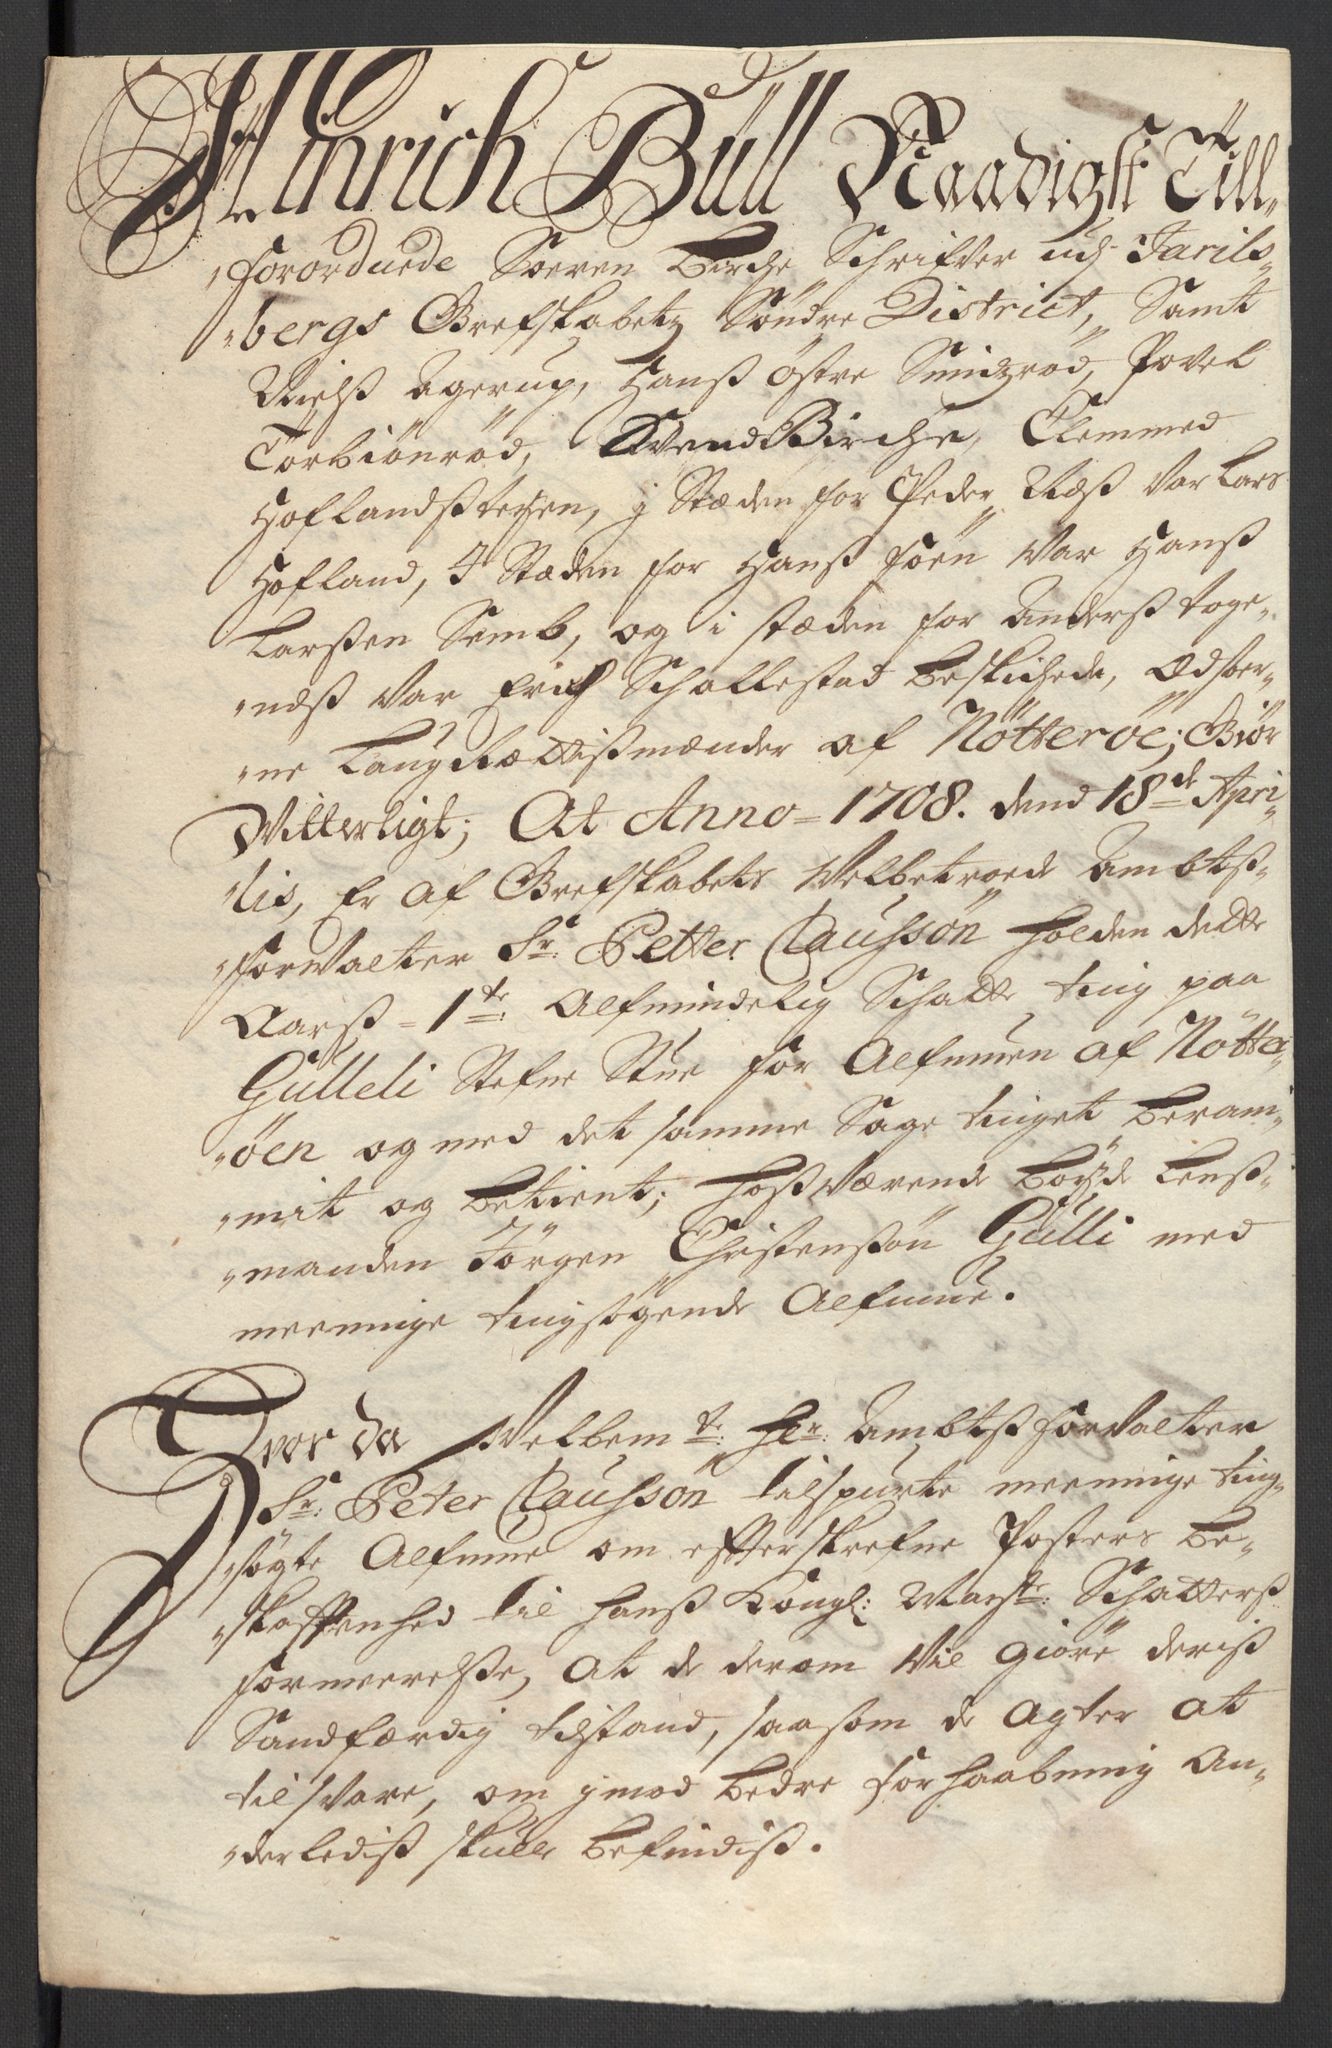 Hinrich Büll Naadigst Till-
forordnede Soeren birche Schrifver udj Jarils-
bergs Grefskabetz Söndre District, Samt
Nielss Agerup, Hanss östre Smidzrød, Povel
Torbiönröd, Svend Birche, Clemmed
Hoflandssteyen, j Stæden for Peder Næss var Lars
Hofland, J Stæden for Hanss foen var Hanss
Larssen Semb, og i stæden for Anderss toge-
ndss var Erich Schallestad beskichede, Edsoer-
ne Laugrættissmænder af Nötteröe; Giör
Vitterligt; At Anno 1708. dend 18de Apri-
lis, Er af Grefskabets Velbetroede Ambtss-
forvalter Sr. Petter Claussön holden dette
Aarss 1te Alfmindelig Schatte ting paa
Gulleli Stefne Stue for Alfmuen af Nötter-
öen og med det samme Sage tinget beram-
mit og betient; hossværende bøyde Lenss-
manden Jörgen Christenssön Gulli med
meenige tingsögende Alfmue.
Hvor da Velbemte Hr. Ambtssforvalter
Sr. Peter Claussön tilspurte meenige ting-
sögte Alfmue om efterskrefne Posters be-
skaffenhed til hanss Kongl: Mayts: Schatterss
formeerelsse, at de derom vil giöre deriss
Sandfærdig tilstand, saasom de agter at
tilsvare, om jmod bedre forhaabning an-
derlediss skulle befindiss.